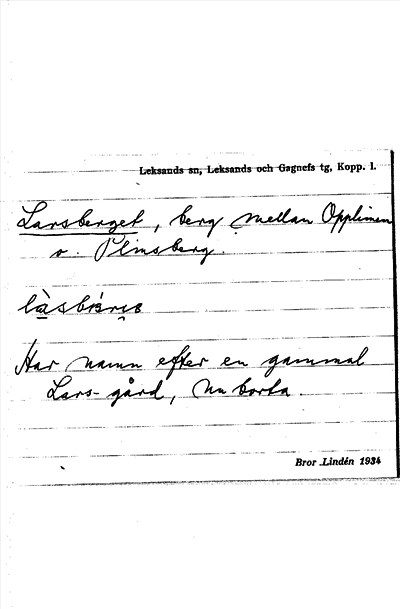 Leksands sn, Leksands och Gagnefs tg, Kopp. l.
Larsberget, berg mellan Opplimen
o. Plinsberg.
Har namn efter en gammal
Lars-gård, nu borta.
Bror Lindén 1934